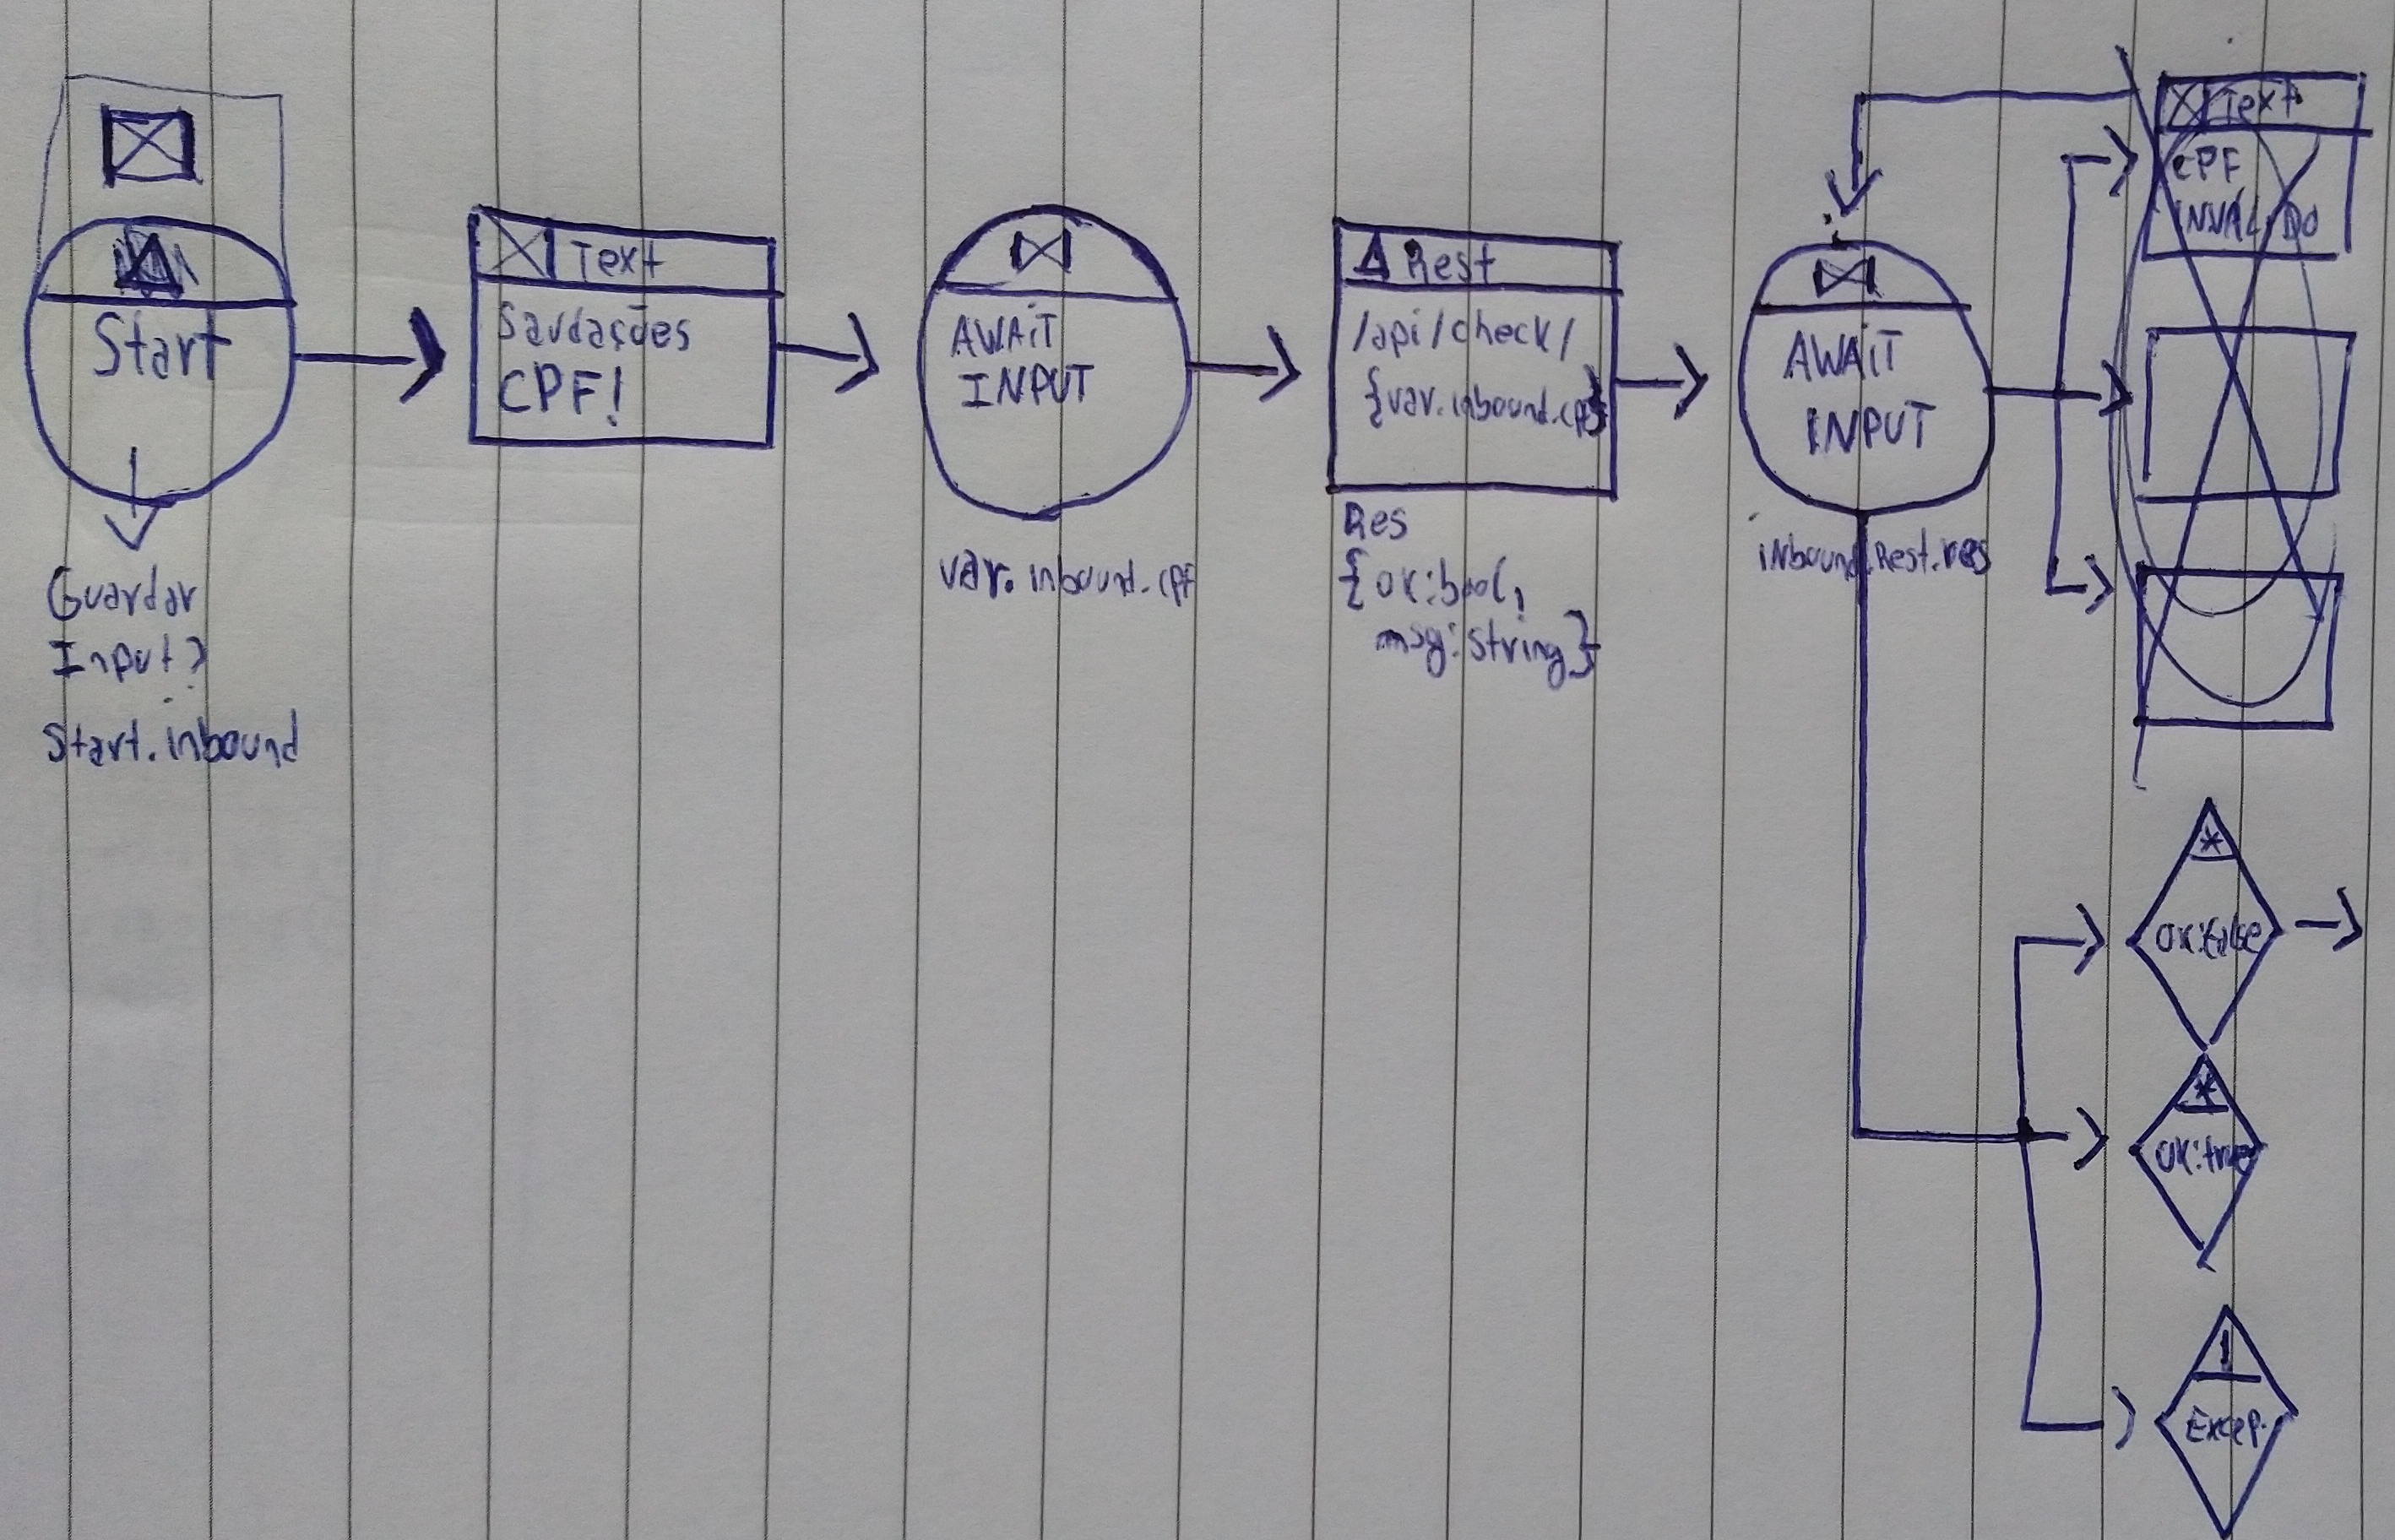 Start
Guardar
Input?
Start.inbound
Text
Saudações
CPF!
AWAIT
INPUT
var.inbound.cpf
Rest
/api/check/
{var.inbound.cpf}
Res
{ok:bool,
msg:string}
AWAIT
INPUT
inbound.Rest.res
Text
CPF
INVALIDO
*
ok:false
*
ok:true
!
Excep.